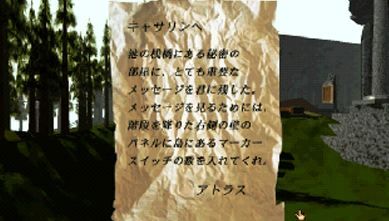 キャサリンへ
池の桟橋にある秘密の
部屋に、とても重要な
メッセージを君に残した。
メッセージを見るためには、
階段を降りた右側の壁の
パネルに島にあるマーカー
スイッチの数を入れてくれ。
アトラス